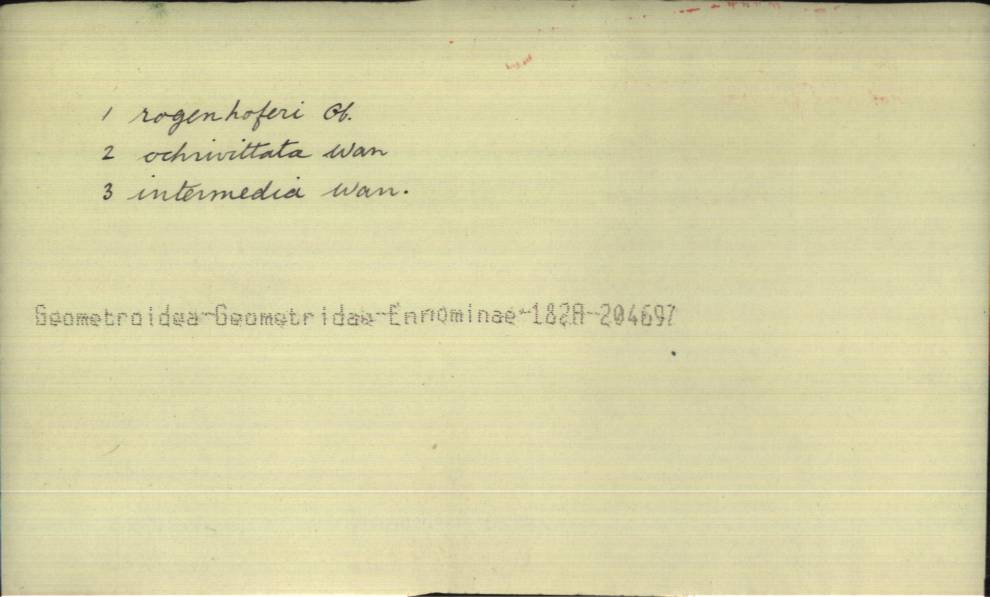 1 rogenhoferi Ob.
2 ochrivittata Wan
3 intermedia Wan.
Geometroidea-Geometridae-Ennominae-182A-204697